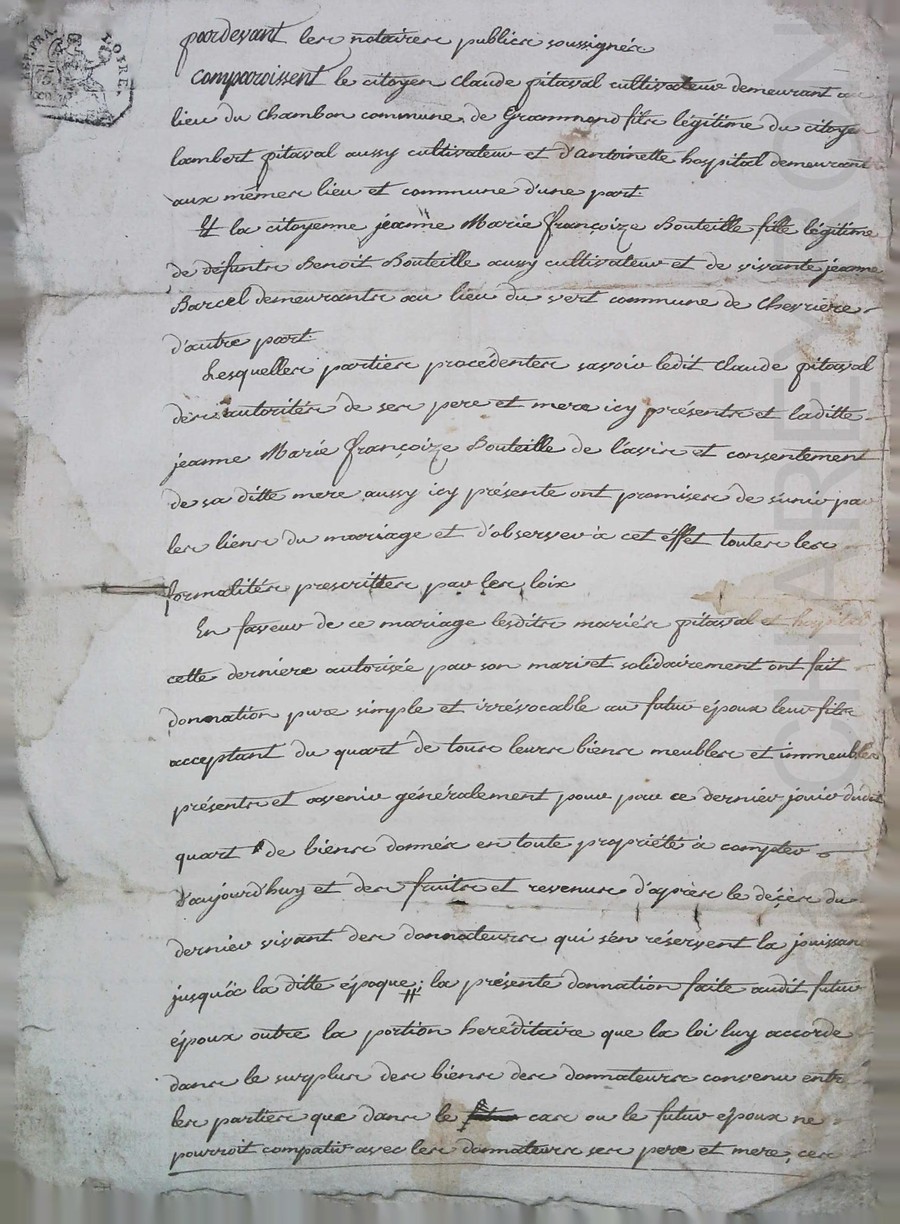 REP.FRA. LOIRE.
pardevant les notaires publics soussignés
comparoissent le citoyen Claude pitaval cultivateur demeurant au
lieu du Chambon commune de Grammond fils légitime du citoyen
lambert pitaval aussy cultivateur et d'antoinette hospital demeurant
aux mêmes lieu et commune d'une part.
Et la citoyenne jeanne Marie françoize Bouteille fille légitime
de défunts Benoit Bouteille aussy cultivateur et de vivante jeanne
Barcel demeurants au lieu du vert commune de Chevrieres
d'autre part.
Lesquelles parties procédentes savoir ledit Claude pitaval
des autorités de ses pere et mere icy présents et laditte
jeanne Marie françoize Bouteille de l'avis et consentement
de sa ditte mere aussy icy présente ont promises de s'unir par
les liens du mariage et d'observer à cet éffet toutes les
formalités prescrittes par les loix
En faveur de ce mariage lesdits mariés pitaval et hospital
cette derniere autorisée par son mari et solidairement ont fait
donnation pure simple et irrévocable au futur époux leur fils
acceptant du quart de tous leurs biens meubles et immeubles
présents et avenir généralement pour par ce dernier jouir dudit
quart de biens donnés en toute propriété à compter
d'aujourd'huy et des fruits et revenus d'après le décès du
dernier vivant des donnateurs qui s'en réservent la jouissance
jusqu'à la ditte époque; la présente donnation faite audit futur
époux outre la portion hereditaire que la loi luy accorde
dans le surplus des biens des donnateurs convenu entre
les parties que dans le cas ou le futur époux ne
pourroit compatir avec les donnateurs ses pere et mere, ces
CHAREYRON